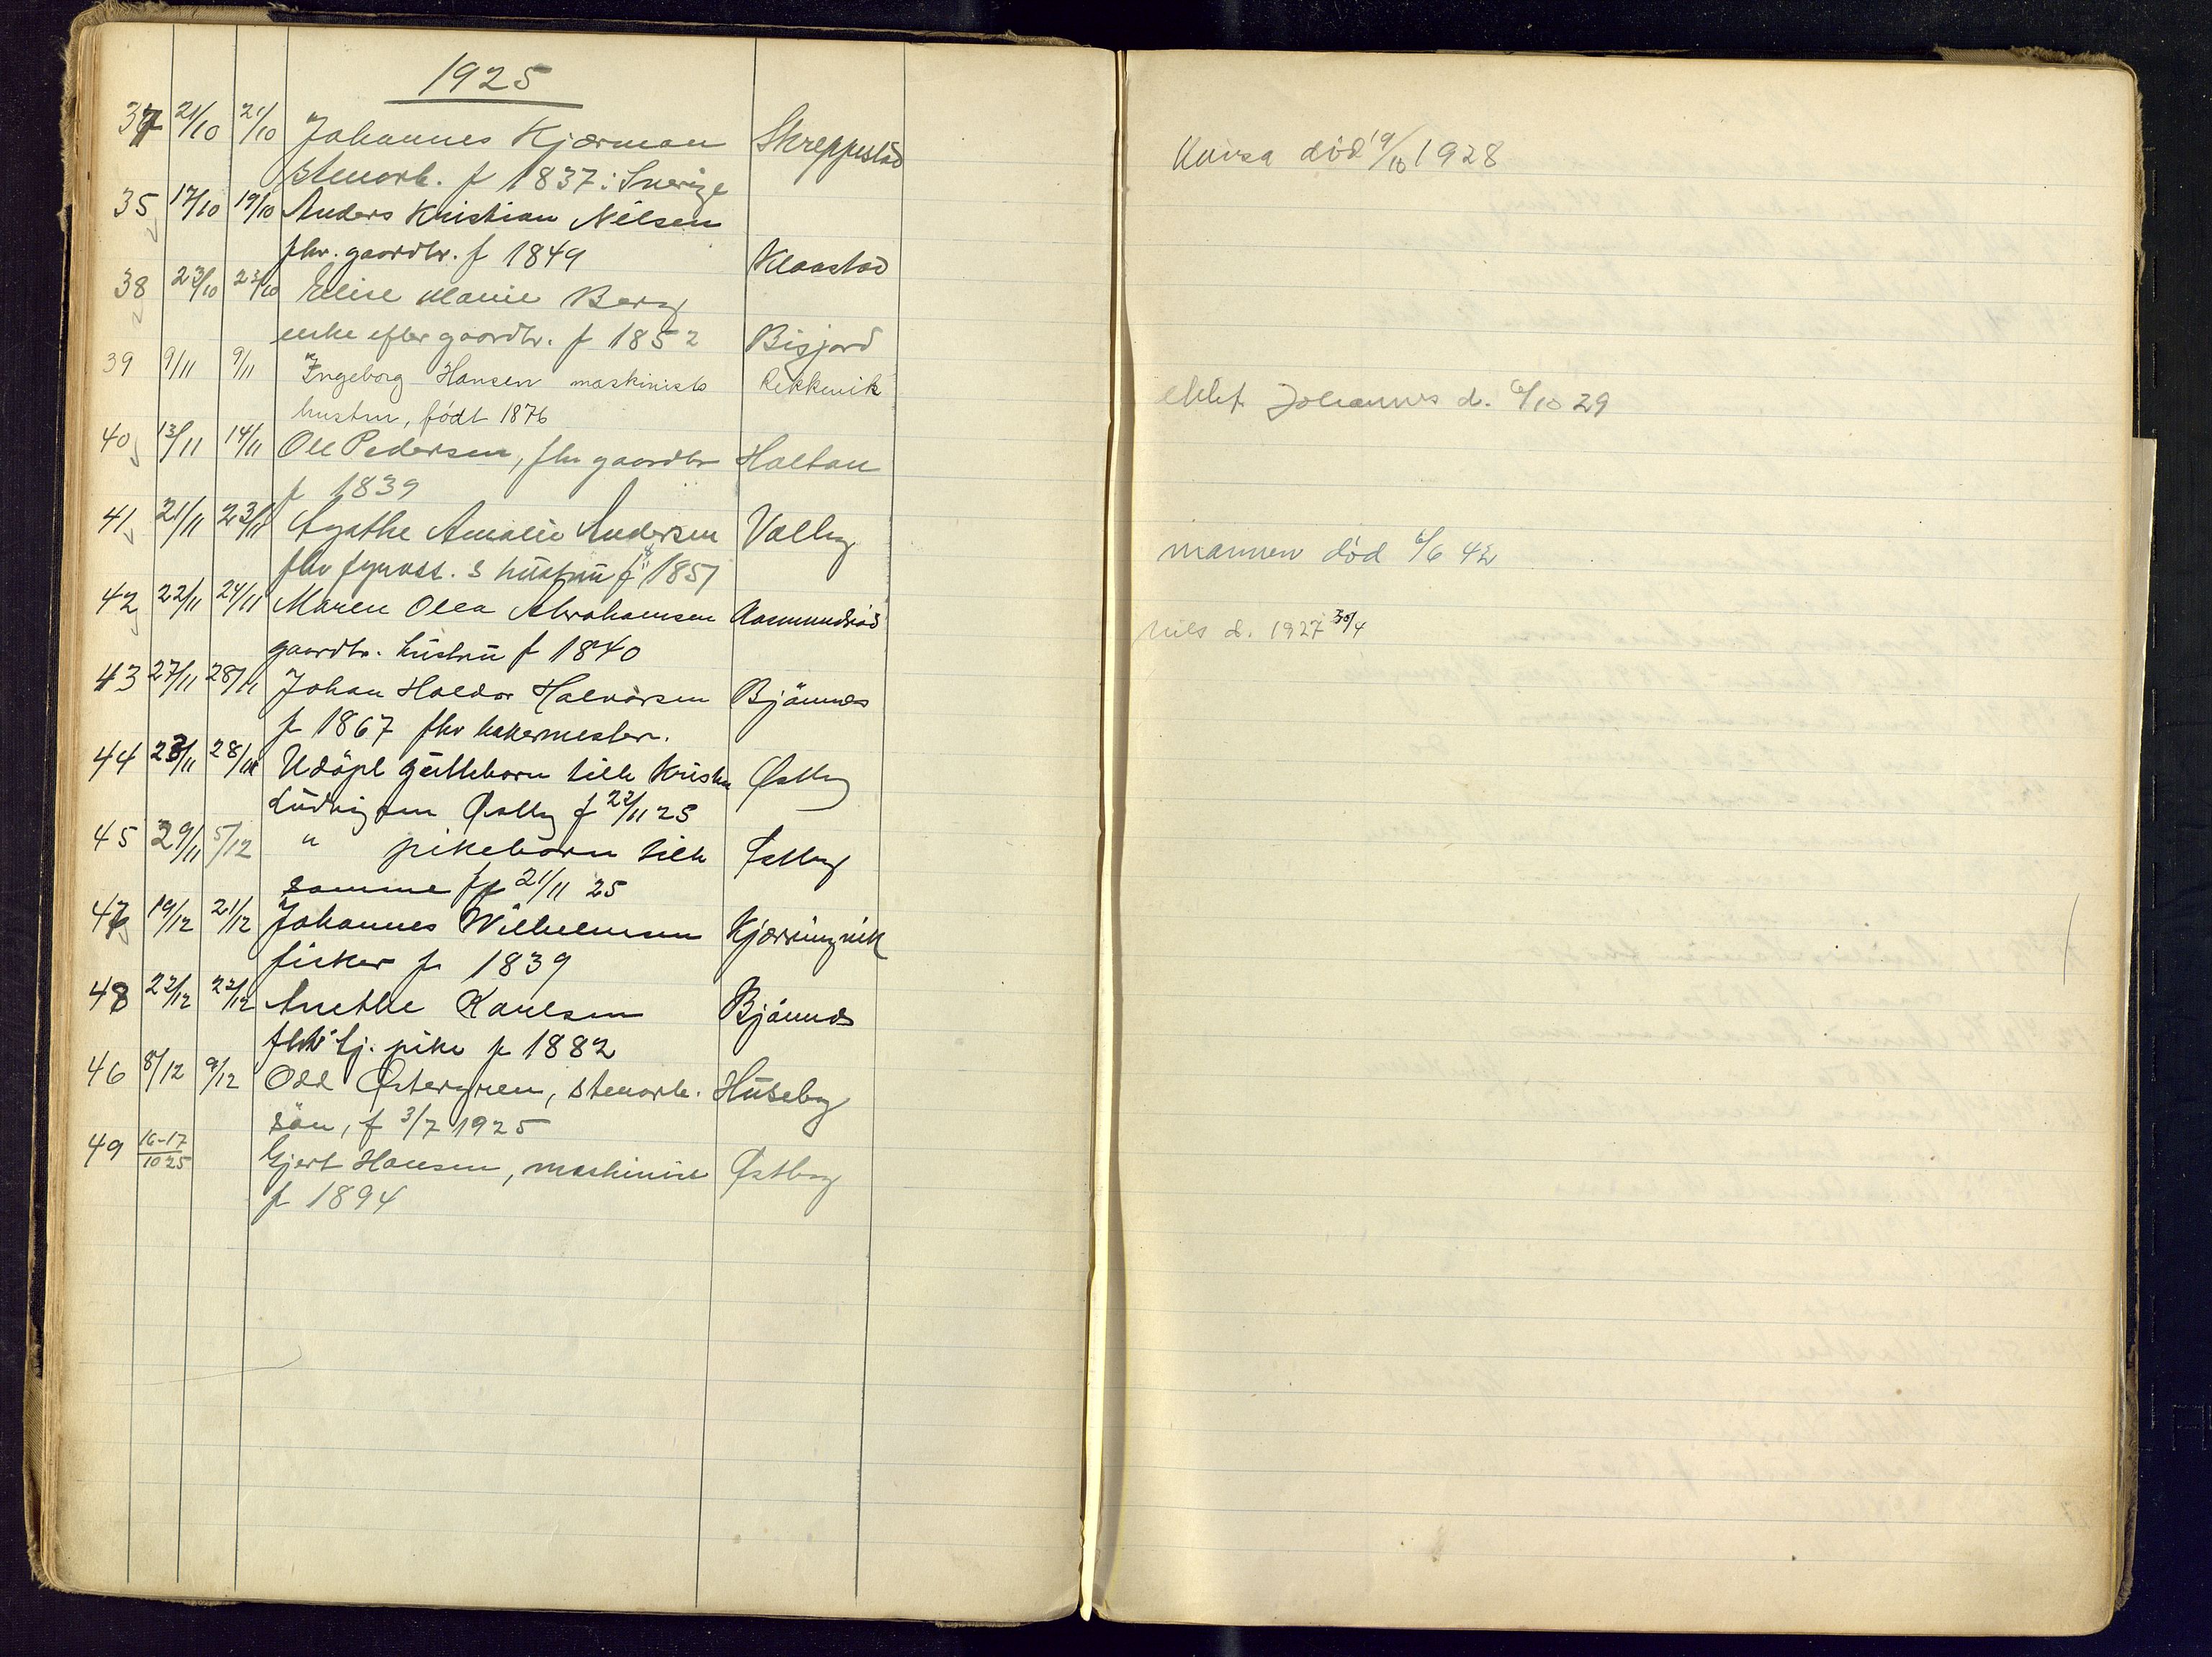 1925
37 21/10 21/10 Johannes Kjærman Skreppestad
stenarb. f 1837 i Sverige
35 17/10 19/10 Anders Kristian Nilsen
fhv. gaardbr. f 1849 Klaastad
38 23/10 23/10 Elise Marie Berg
enke efter gaardbr. f 1852 Bisjord
39 9/11 9/11 Ingeborg Hansen maskinists Rekkevik
hustru, født 1876
40 13/11 14/11 Ole Pedersen, fhv gaardbr Haltan
f 1839
41 21/11 23/11 Agathe Amalie Andersen Valby
fhv fyrvost. s hustru f 1851
42 22/11 24/11 Maren Olea Abrahamsen Aasmundrød
gaardbr. hustru f 1840
43 27/11 28/11 Johan Haldor Halvorsen Bjønnes
f 1867 fhv bakermester.
44 23/11 28/11 Udøpt guttebarn till Kristen Østby
Ludvigsen Østby f 22/11 25
45 29/11 5/12 " pikebarn till Østby
samme f 21/11 25
47 19/12 21/12 Johannes Wilhelmsen Kjerringvik
fisker f 1839
48 22/12 22/12 Anethe Karlsen Bjønnes
fhv tj. pike f 1882
46 8/12 9/12 Odd Østergren, stenarb. Huseby
søn, f 3/7 1925
49 16-17/10 25 Gjert Hansen, maskinist Østby
f 1894
død 19/10 1928
Johannes d. 6/10 29
mannen død 6/6 42
Nils d. 1927 30/4